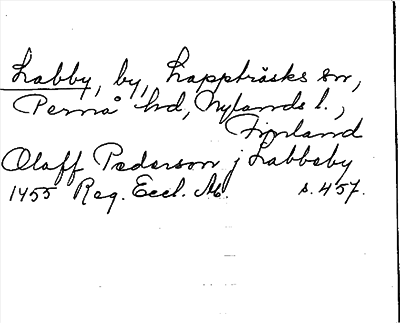 Labby, by, Lappträsks sn,
Pernå hd, Nylands l.,
Finland
Olaff Pederson j Labbeby
1455 Reg. Eccl. Ab. s. 457.